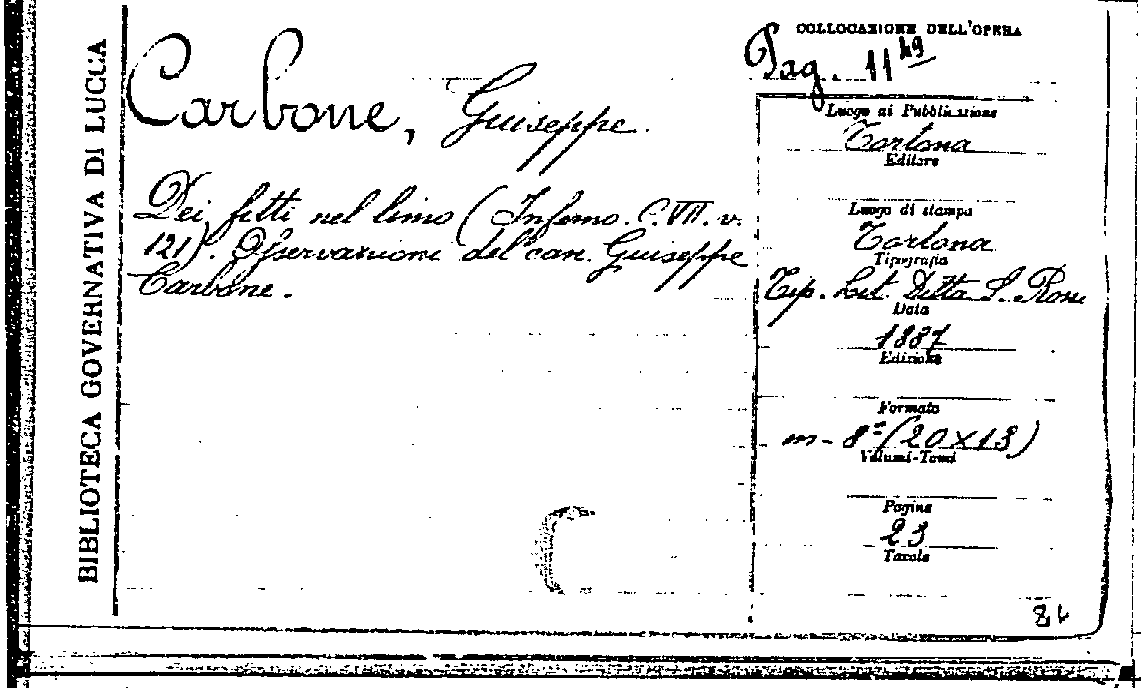 BIBLIOTECA GOVERNATIVA DI LUCCA
Carbone, Giuseppe.
Dei fitti nel limo (Inferno. C. VII. v.
121). Osservazioni del can. Giuseppe
Carbone.
COLLOCAZIONE DELL'OPERA
Pag. 11 49
Luogo di Pubblicazione
Tortona
Editore
Luogo di stampa
Tortona
Tipografia
Tip. Lit. Ditta S. Rossi
Data
1887
Edizione
Formato
in-8º (20×13)
Volumi-Tomi
Pagine
23
Tavole